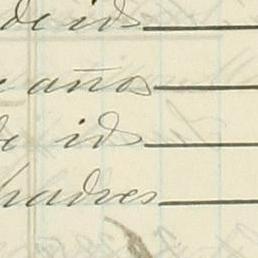 de id
años
de id
padres